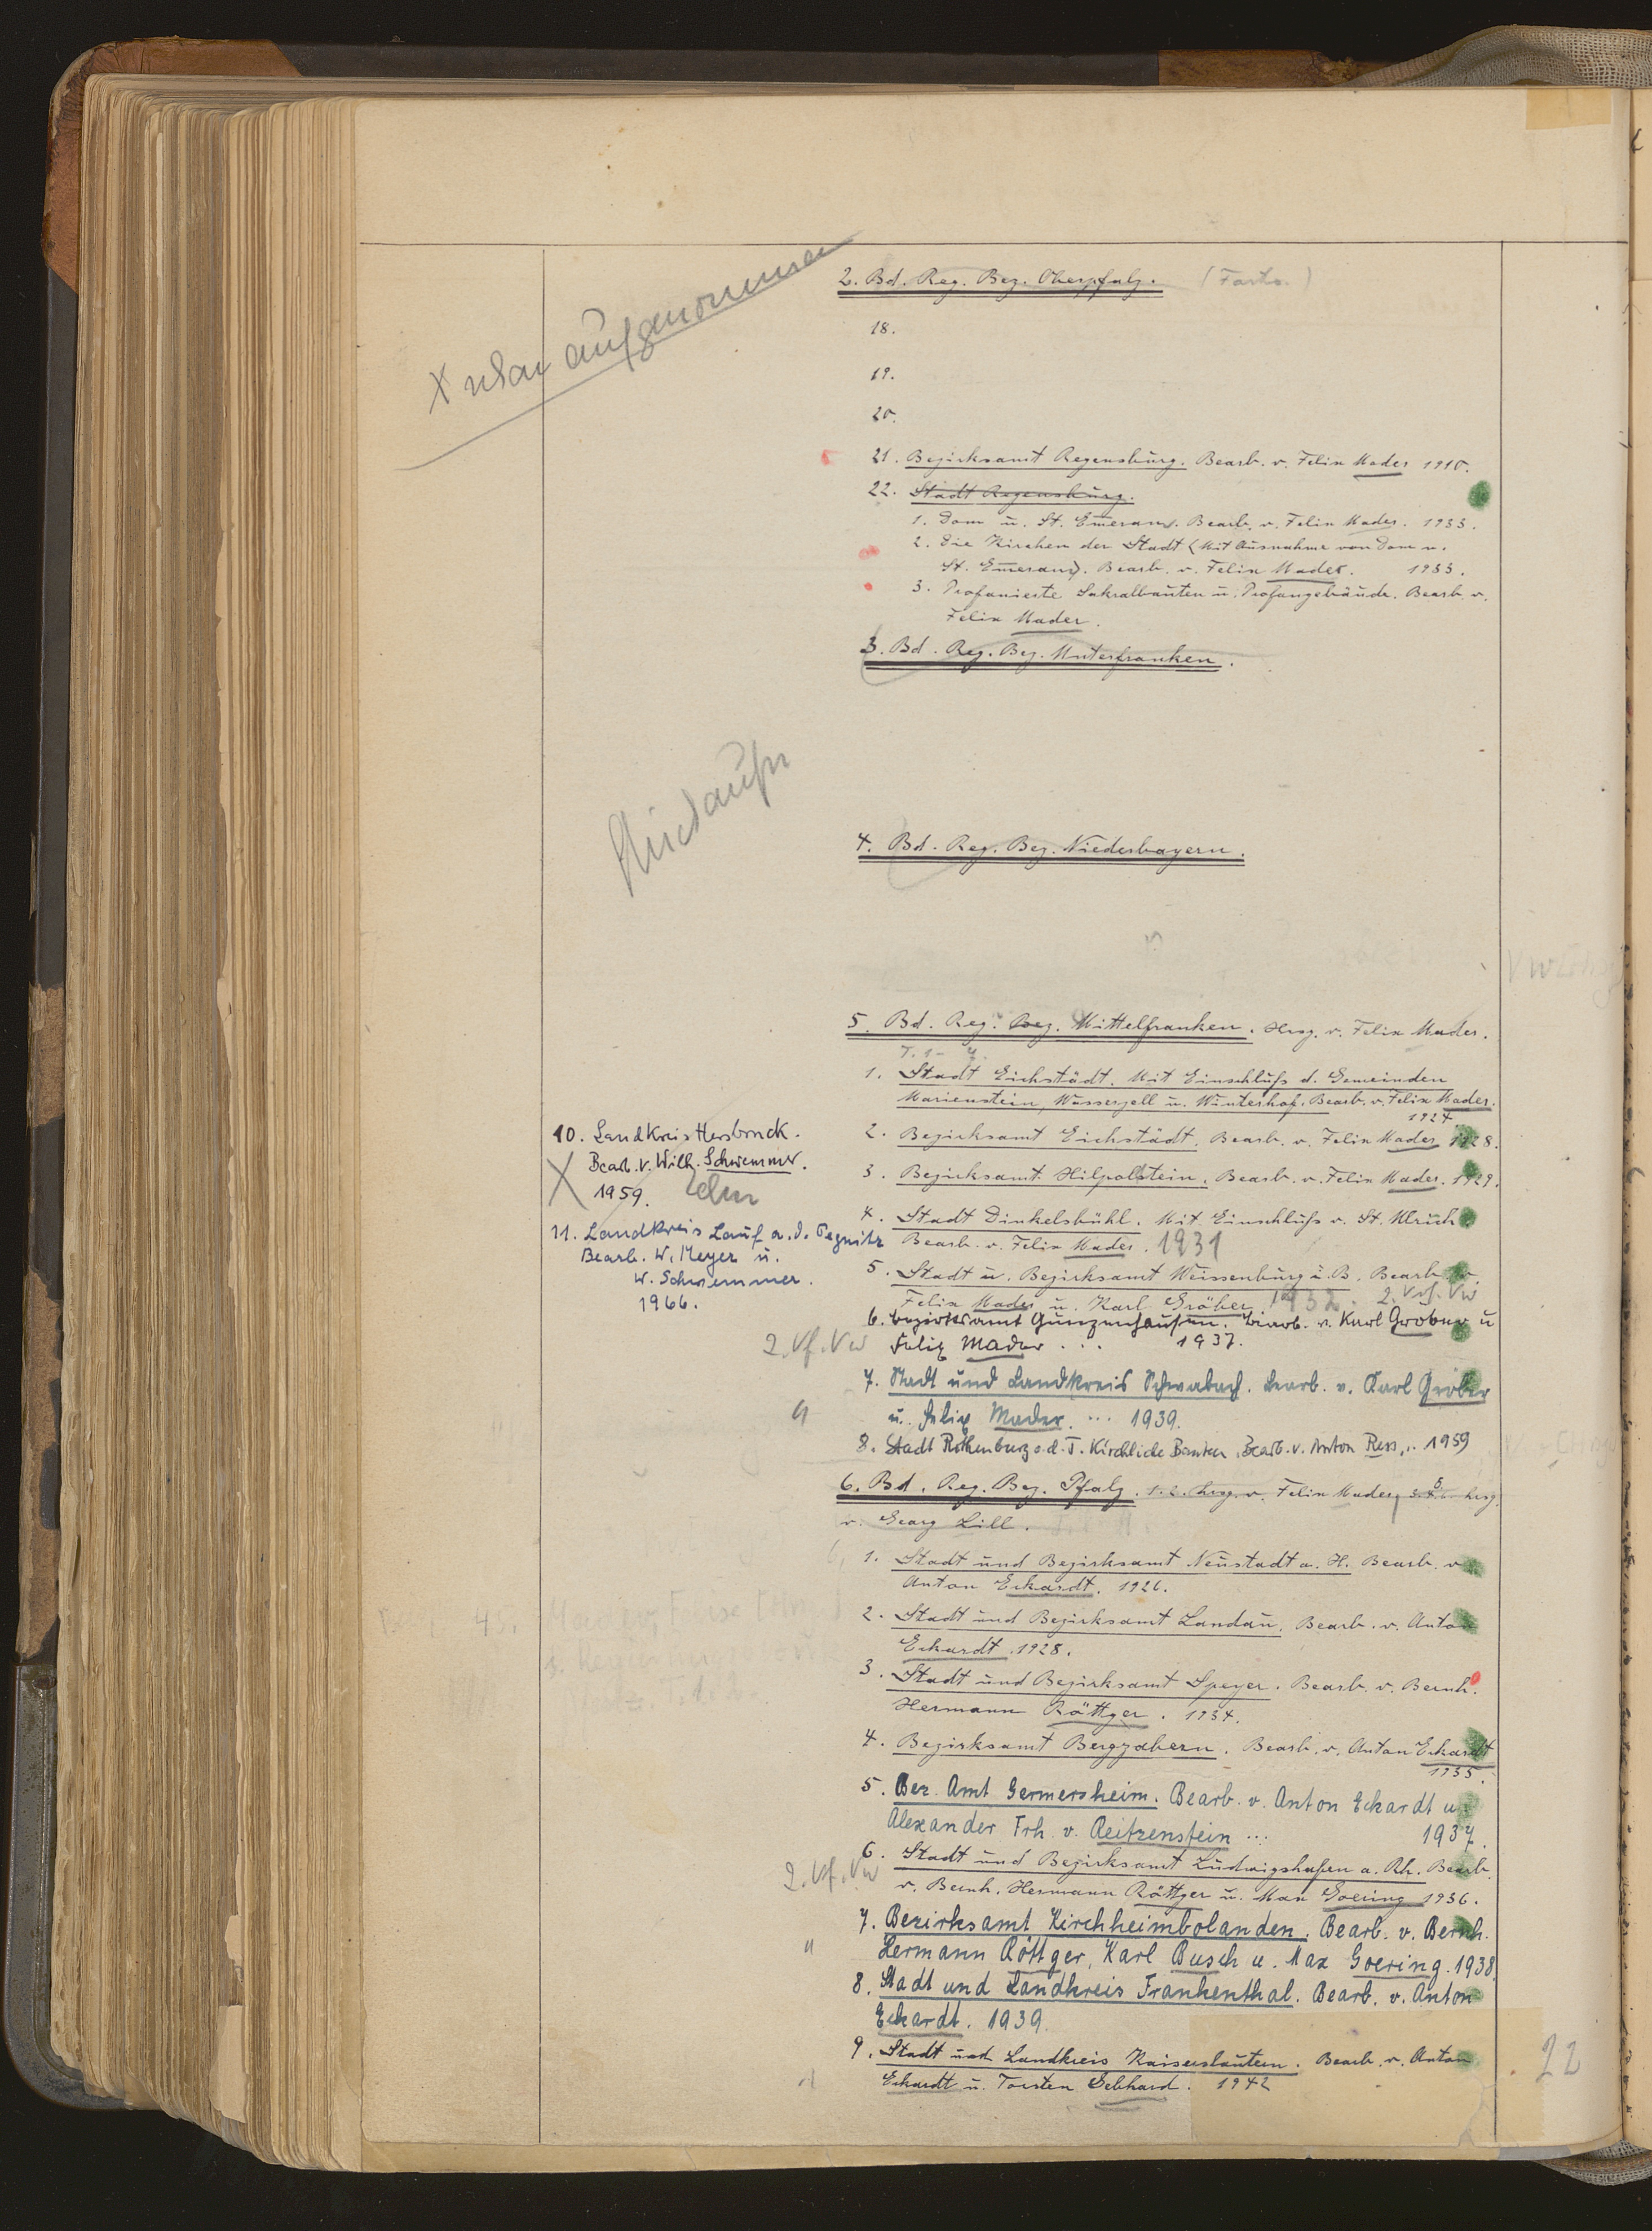 2. Bd. Reg. Bez. Oberpfalz. (Forts.)
aufgenommen
18.
19.
20.
21. Bezirksamt Regensburg. Bearb. v. Felix Mader 1910.
22. Stadt Regensburg.
1. Dom u. St. Emeram. Bearb. v. Felix Mader. 1933.
2. Die Kirchen der Stadt (Mit Ausnahme von Dom u.
St. Emeram). Bearb. v. Felix Mader. 1933.
3. Profanierte Sakralbauten u. Profangebäude. Bearb. v.
Felix Mader.
3. Bd. Reg. Bez. Unterfranken.
4. Bd. Reg. Bez. Niederbayern.
5. Bd. Reg. Bez. Mittelfranken. Hrsg. v. Felix Mader.
1. Stadt Eichstädt. Mit Einschluſs d. Gemeinden
Marienstein, Wasserzell u. Wintershof. Bearb. v. Felix Mader.
1924
2. Bezirksamt Eichstädt. Bearb. v. Felix Mader 1928.
3. Bezirksamt Hilpolstein. Bearb. v. Felix Mader. 1929.
4. Stadt Dinkelsbühl. Mit Einschluſs v. St. Ulrich.
Bearb. v. Felix Mader. 1931
5. Stadt u. Bezirksamt Weissenburg i. B. Bearb. v.
Felix Mader u. Karl Gröber. 1932. 2. Vf. Vw
6. Bezirksamt Gunzenhausen. Bearb. v. Karl Gröber u
2. Vf. Vw Felix Mader ... 1937.
7. Stadt und Landkreis Schwabach. Bearb. v. Karl Gröber
" u. Felix Mader. ... 1939.
8. Stadt Rothenburg o. d. T. Kirchliche Bauten. Bearb. v. Anton Ress... 1959
10. Landkreis Hersbruck.
X Bearb. v. Wilh. Schwemmer.
1959.
11. Landkreis Lauf a. d. Pegnitz
Bearb. W. Meyer u.
W. Schwemmer.
1966.
6. Bd. Reg. Bez. Pfalz. 1. 2. hrsg. v. Felix Mader, hrsg.
v. Georg Lill.
1. Stadt und Bezirksamt Neustadt a. H. Bearb. v.
Anton Eckardt. 1926.
2. Stadt und Bezirksamt Landau. Bearb. v. Anton
Eckardt. 1928.
3. Stadt und Bezirksamt Speyer. Bearb. v. Bernh.
Hermann Röttger. 1934.
4. Bezirksamt Bergzabern. Bearb. v. Anton Eckardt
1935.
5. Bez. Amt Germersheim. Bearb. v. Anton Eckardt u.
Alexander Frh. v. Reitzenstein ... 1937.
6. Stadt und Bezirksamt Ludwigshafen a. Rh. Bearb.
2. Vf. Vw v. Bernh. Hermann Röttger u. Max Goering 1936.
7. Bezirksamt Kirchheimbolanden. Bearb. v. Bernh.
" Hermann Röttger, Karl Busch u. Max Goering. 1938.
8. Stadt und Landkreis Frankenthal. Bearb. v. Anton
Eckardt. 1939.
9. Stadt und Landkreis Kaiserslautern. Bearb. v. Anton
Eckardt u. Torsten Gebhard. 1942
22